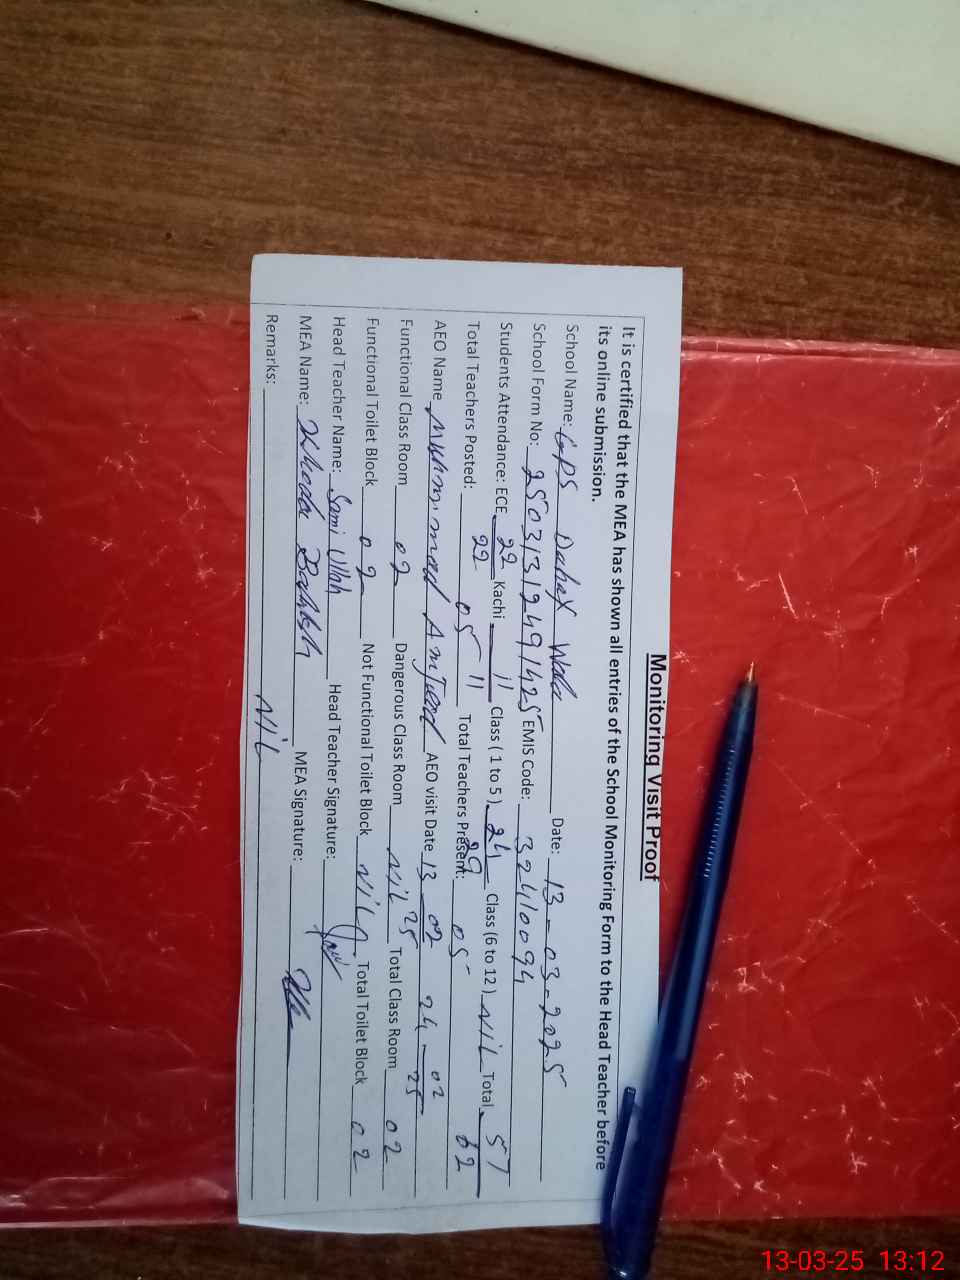 Monitoring Visit Proof
It is certified that the MEA has shown all entries of the School Monitoring Form to the Head Teacher before
its online submission.
School Name: GPS Dahax Wala Date: 13-03-2025
School Form No: 25031312491425 EMIS Code: 32410094
Students Attendance: ECE 22 Kachi 11 Class ( 1 to 5 ) 24 Class (6 to 12 ) NIL Total 57
22 11 29 62
Total Teachers Posted: 05 Total Teachers Present: 05
AEO Name Muhmmad Amjad AEO visit Date 13 02 25 24 02 25
Functional Class Room 02 Dangerous Class Room NIL Total Class Room 02
Functional Toilet Block 02 Not Functional Toilet Block NIL Total Toilet Block 02
Head Teacher Name: Sami Ullah Head Teacher Signature:
MEA Name: Khuda Bakhsh MEA Signature:
Remarks: NIL
13-03-25 13:12